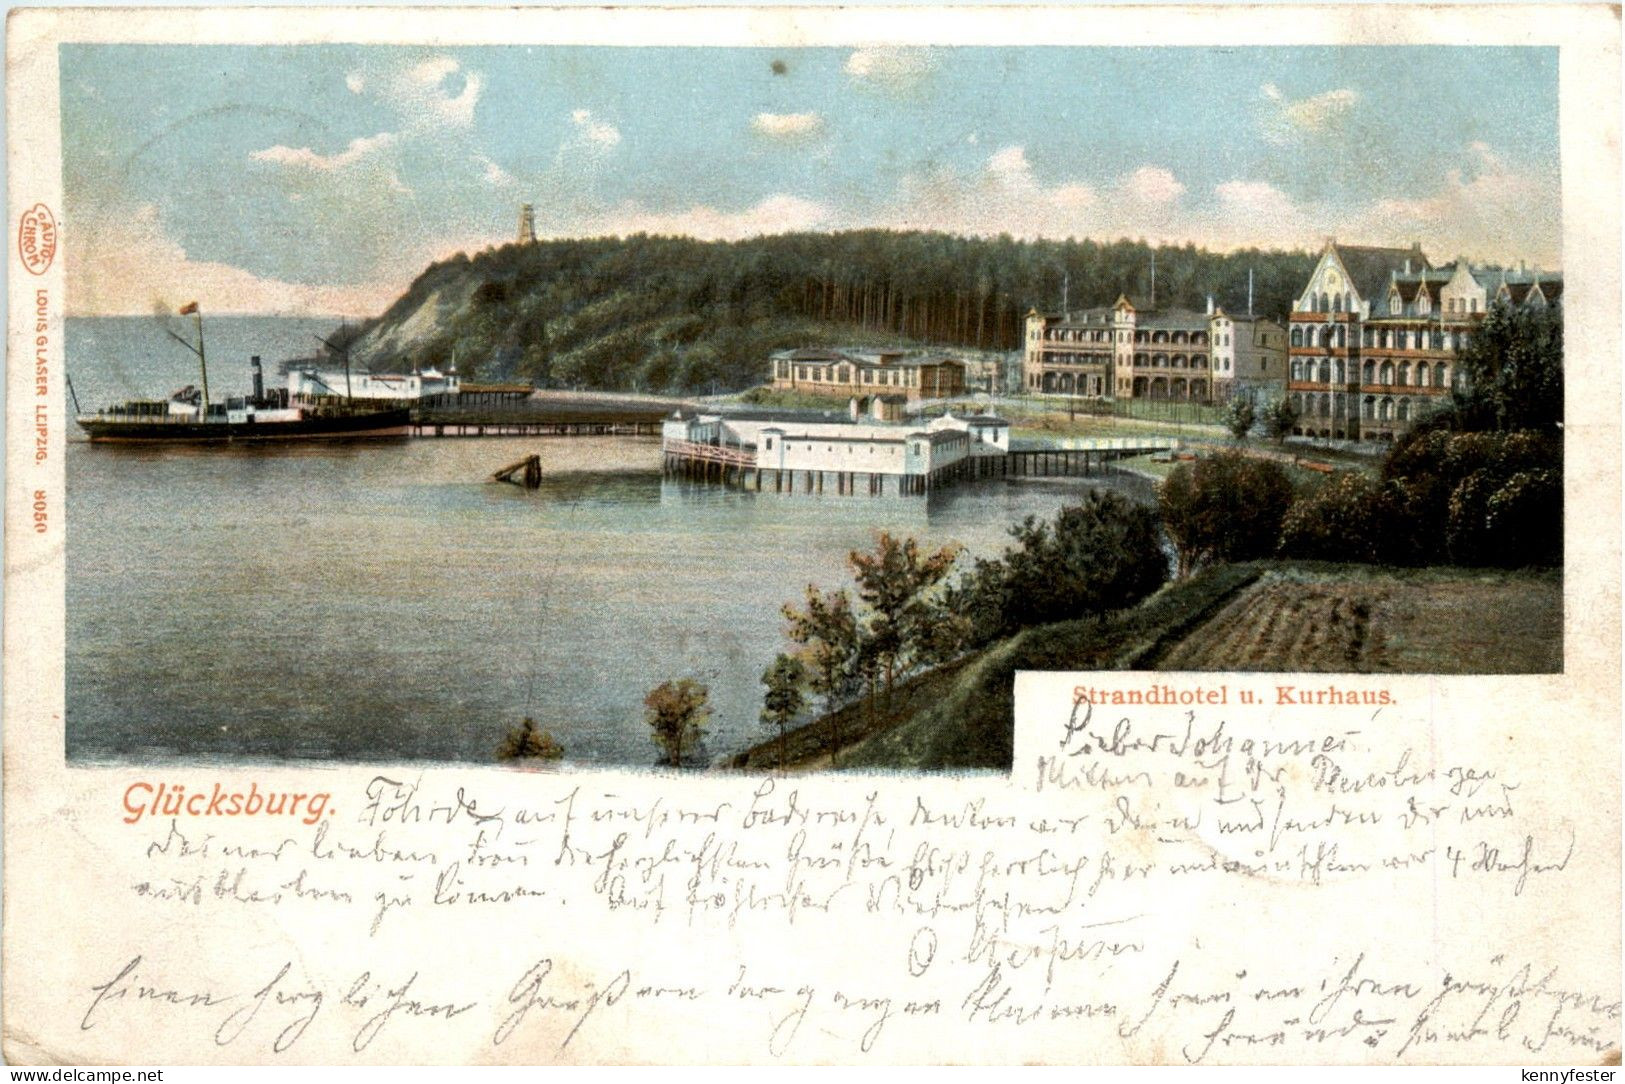 AUTO-
CHROM
LOUIS GLASER LEIPZIG. 8050
Strandhotel u. Kurhaus.
Lieber Johannes!
Mitten auf der Flensburger
Glücksburg.
Föhrde, auf unserer Badereise, denken wir Dein und senden Dir und
Deiner lieben Frau die herzlichsten Grüße. Es ist herrlich hier und wünschten wir 4 Wochen
ausbleiben zu können. Auf fröhliches Wiedersehen.
Einen herzlichen Gruß von der ganzen kleinen Frau an ihren größten
Freund u
www.delcampe.net
kennyfester